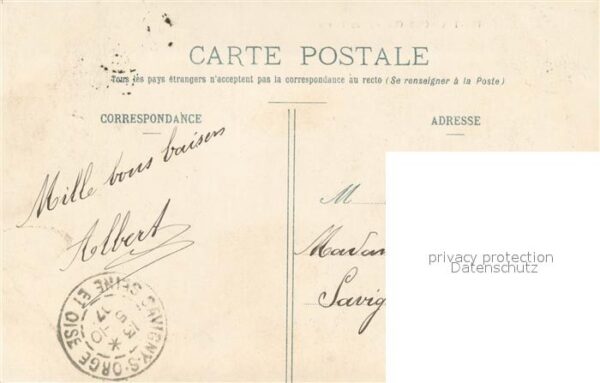 CARTE POSTALE
Tous les pays étrangers n'acceptent pas la correspondance au recto (Se renseigner à la Poste)
CORRESPONDANCE
ADRESSE
Mille bons baisers
Albert
M
Madam
Savig
privacy protection
Datenschutz
SAVIGNY-S-ORGE SEINE ET OISE
13
5-10
17